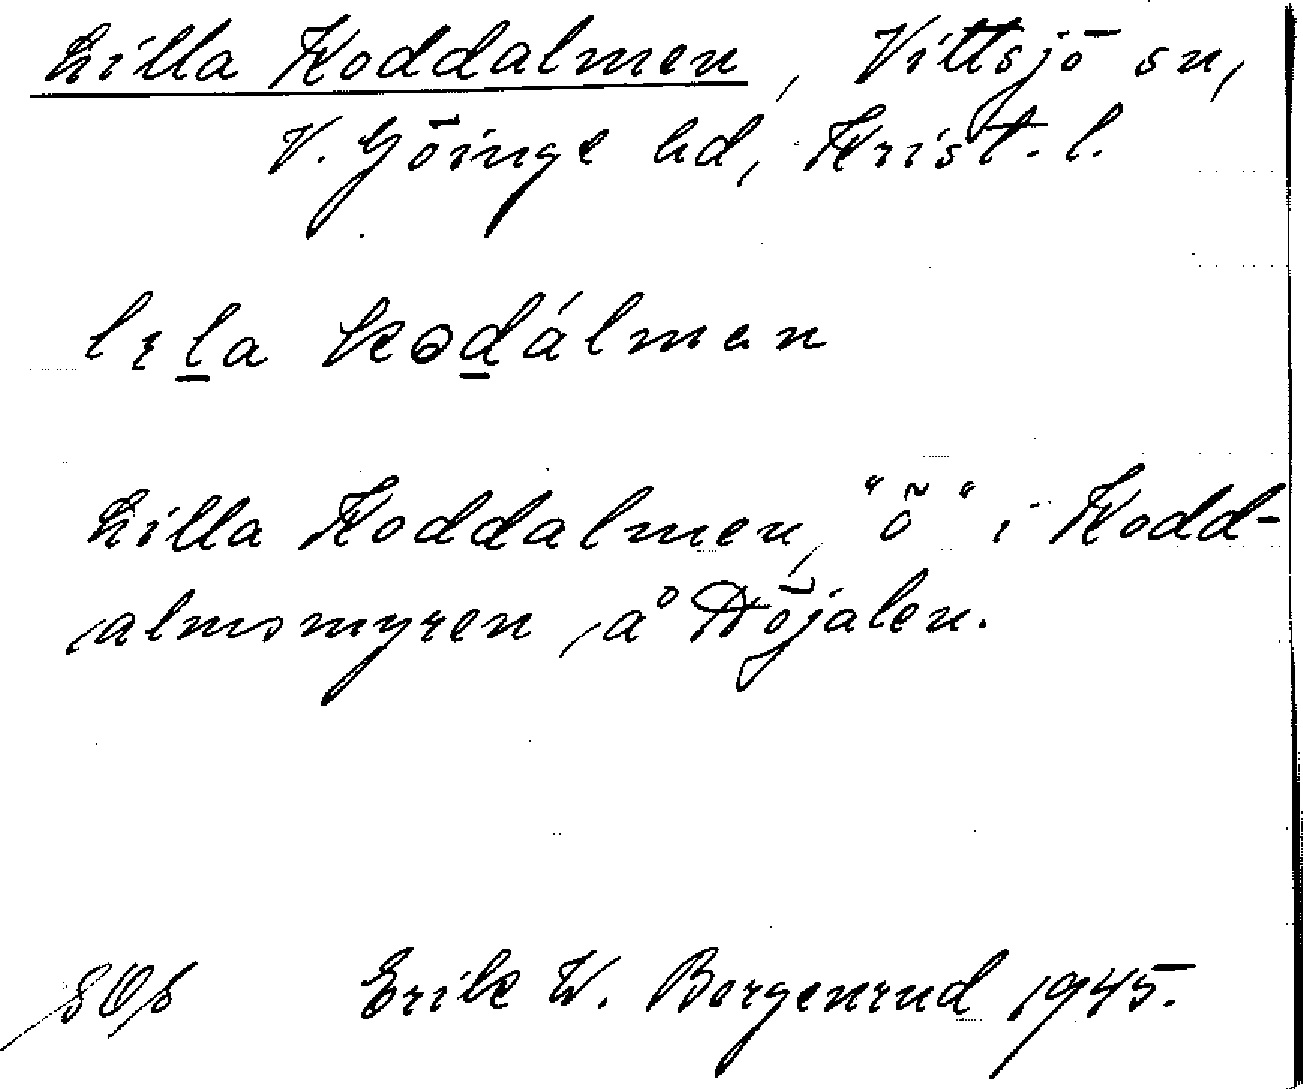 Lilla Koddalmen, Vittsjö sn,
V. Göinge hd, Krist. l.
lıla kodálmen
Lilla Koddalmen, "ö" i Kodd-
almsmyren å Höjalen.
Erik W. Bergenrud 1945.